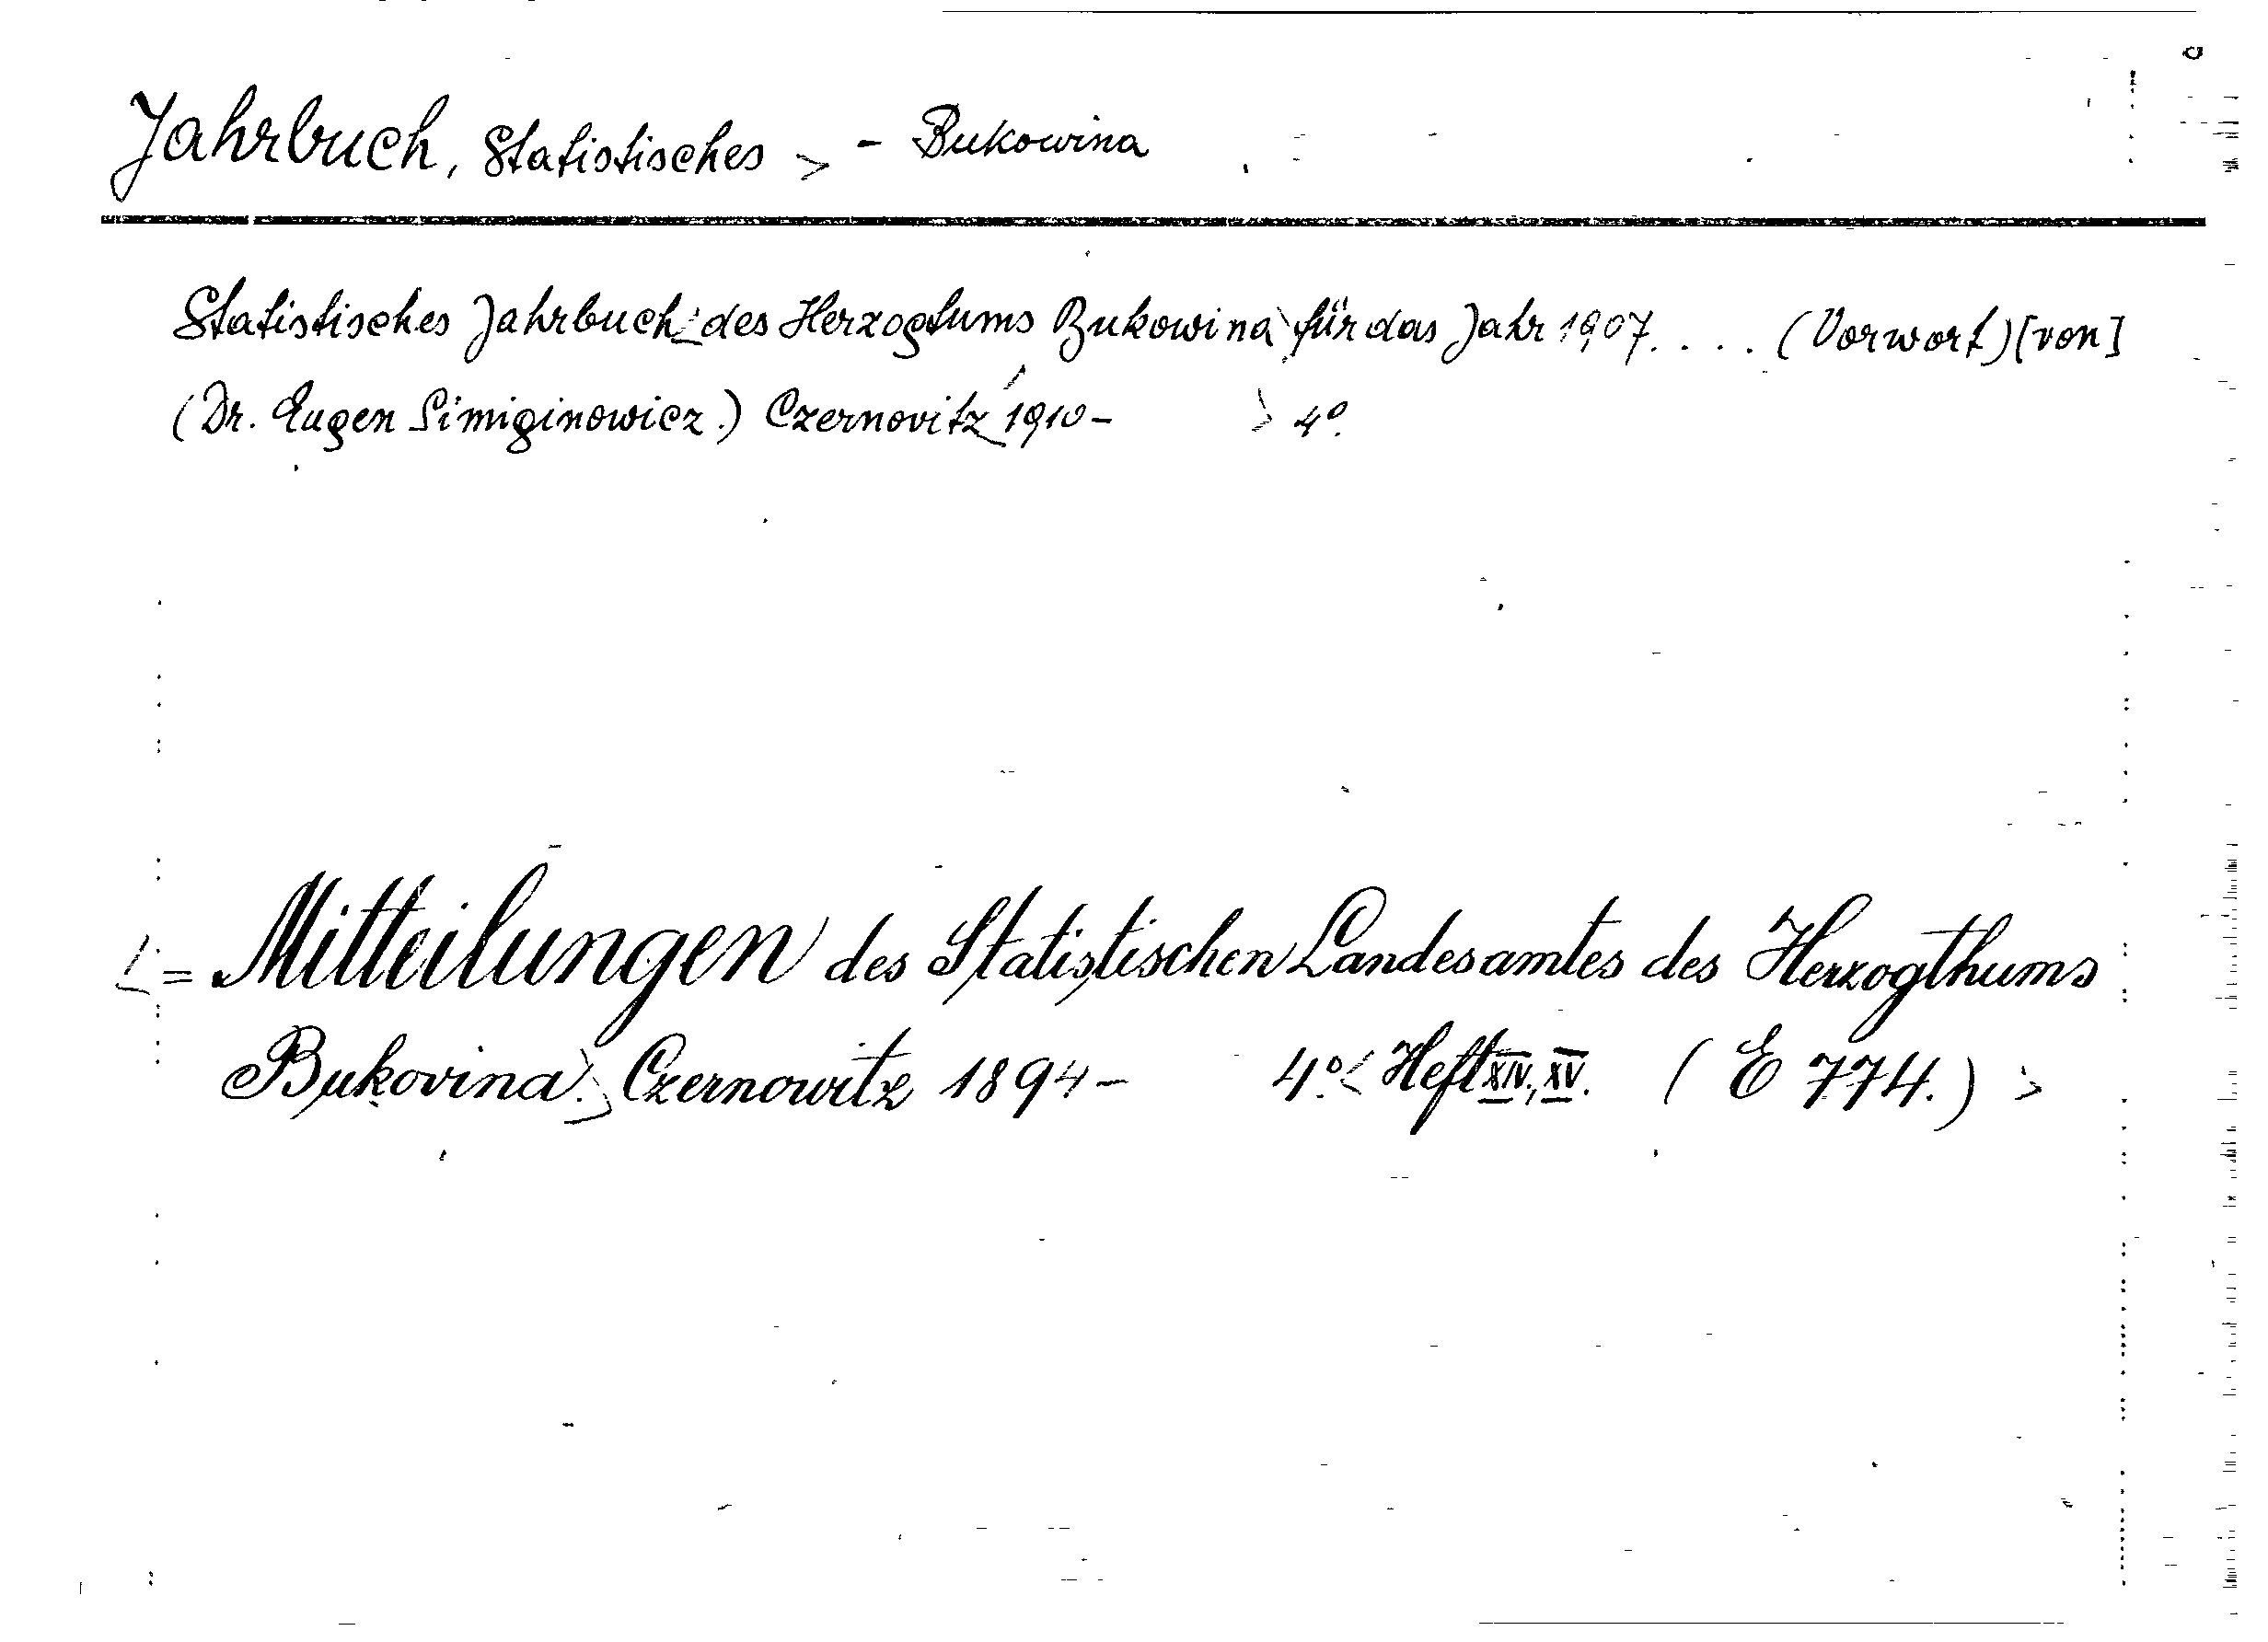 Jahrbuch, Statistisches > - Bukowina
Statistisches Jahrbuch des Herzogtums Bukowina für das Jahr 1907. . . . (Vorwort) [von]
(Dr. Eugen Simiginowicz.) Czernovitz 1910- > 4°.
= Mitteilungen des Statistischen Landesamtes des Herzogthums
Bukovina. Czernowitz 1894- 4°. < Heft XIV., XV. (E 774.) >